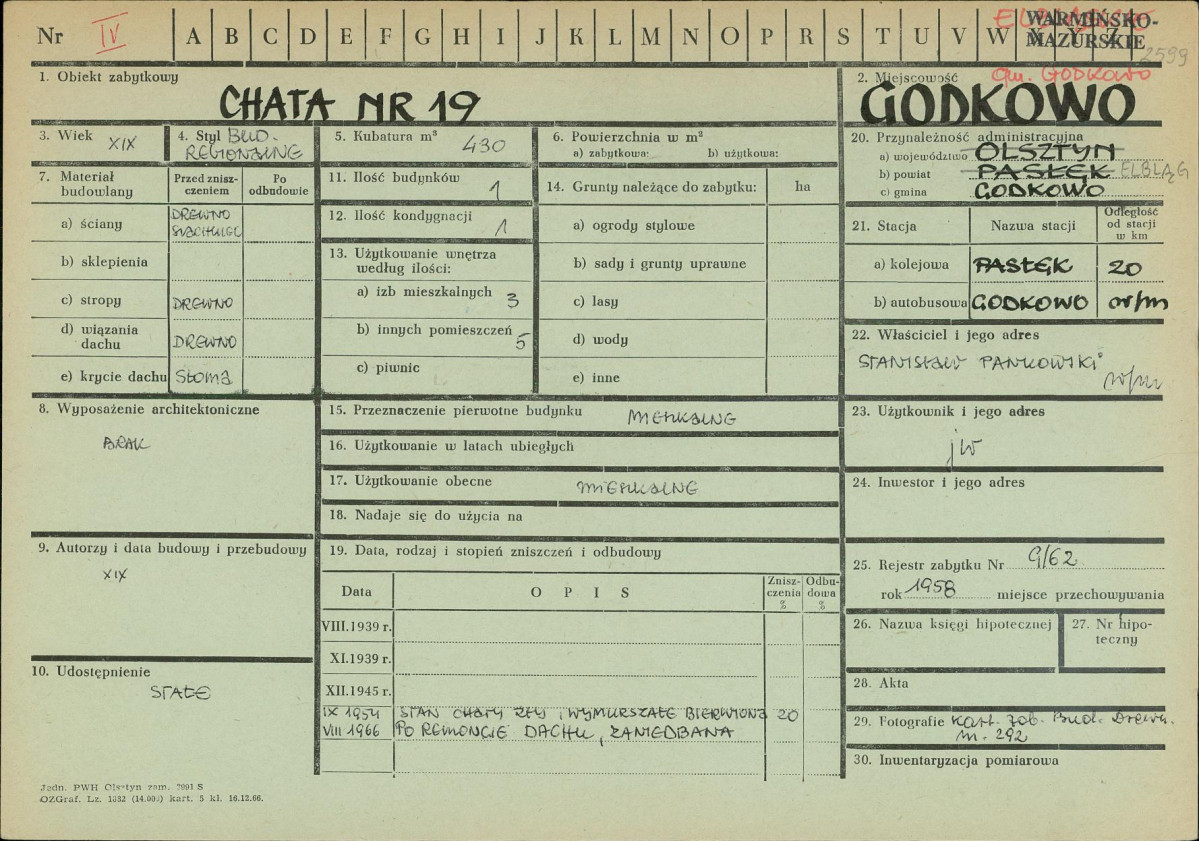 Nr IV A B C D E F G H I J K L M N O P R S T U V W X Y Z
WARMIŃSKO-
MAZURSKIE
2599
1. Obiekt zabytkowy
CHATA NR 19
2. Miejscowość gm. GODKOWO
GODKOWO
3. Wiek XIX
4. Styl BUD.
REGIONALNE
5. Kubatura m³ 430
6. Powierzchnia w m²
a) zabytkowa: b) użytkowa:
7. Materiał
budowlany
Przed znisz-
czeniem
Po
odbudowie
a) ściany DREWNO
b) sklepienia
c) stropy DREWNO
d) wiązania
dachu DREWNO
e) krycie dachu SŁOMA
8. Wyposażenie architektoniczne
BRAK
9. Autorzy i data budowy i przebudowy
XIX
10. Udostępnienie
STAŁE
11. Ilość budynków 1
12. Ilość kondygnacji 1
13. Użytkowanie wnętrza
według ilości:
a) izb mieszkalnych 3
b) innych pomieszczeń 5
c) piwnic
14. Grunty należące do zabytku: ha
a) ogrody stylowe
b) sady i grunty uprawne
c) lasy
d) wody
e) inne
15. Przeznaczenie pierwotne budynku MIESZKALNE
16. Użytkowanie w latach ubiegłych
17. Użytkowanie obecne MIESZKALNE
18. Nadaje się do użycia na
19. Data, rodzaj i stopień zniszczeń i odbudowy
Data O P I S Znisz-
czenia
% Odbu-
dowa
%
VIII.1939 r.
XI.1939 r.
XII.1945 r.
IX 1954 STAN CHATY ZŁY, WYMURSZAŁE BIERWIONA 20
VIII 1966 PO REMONCIE DACHU, ZANIEDBANA
20. Przynależność administracyjna
a) województwo OLSZTYN
b) powiat PASŁĘK ELBLĄG
c) gmina GODKOWO
21. Stacja Nazwa stacji Odległość
od stacji
w km
a) kolejowa PASŁĘK 20
b) autobusowa GODKOWO w/m
22. Właściciel i jego adres
STANISŁAW PANKOWSKI
w/m
23. Użytkownik i jego adres
jw
24. Inwestor i jego adres
25. Rejestr zabytku Nr G/62
rok 1958 miejsce przechowywania
26. Nazwa księgi hipotecznej
27. Nr hipo-
teczny
28. Akta
29. Fotografie Kart. Zob. Bud. Drewn.
nr. 292
30. Inwentaryzacja pomiarowa
Jedn. PWH Olsztyn zam. 2991 S
OZGraf. Lz. 1832 (14.000) kart. 5 kl. 16.12.66.